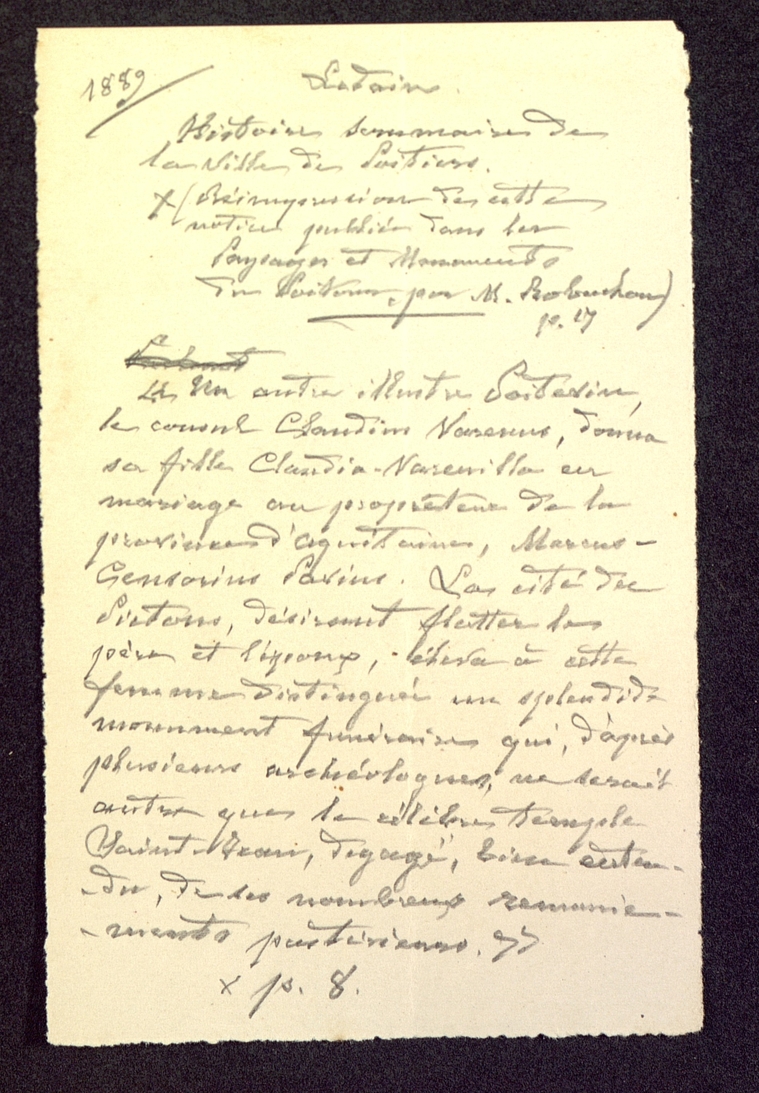 1889
Ledain.
Histoire sommaire de
la Ville de Poitiers.
x (Réimpression de cette
notice publiée dans les
Paysages et Monuments
du Poitou, par M. Robuchon)
p. 17
« Un autre illustre Poitevin,
le consul Claudius Varenus, donna
sa fille Claudia-Varenilla en
mariage au propréteur de la
province d'Aquitaine, Marcus-
Censorius Pavius. La cité des
Pictons, désirant flatter le
père et l'époux, éleva à cette
femme distinguée un splendide
monument funéraire qui, d'après
plusieurs archéologues, ne serait
autre que le célèbre temple
Saint-Jean, dégagé, bien enten-
-du, de ses nombreux remanie-
-ments postérieurs. »
x p. 8.